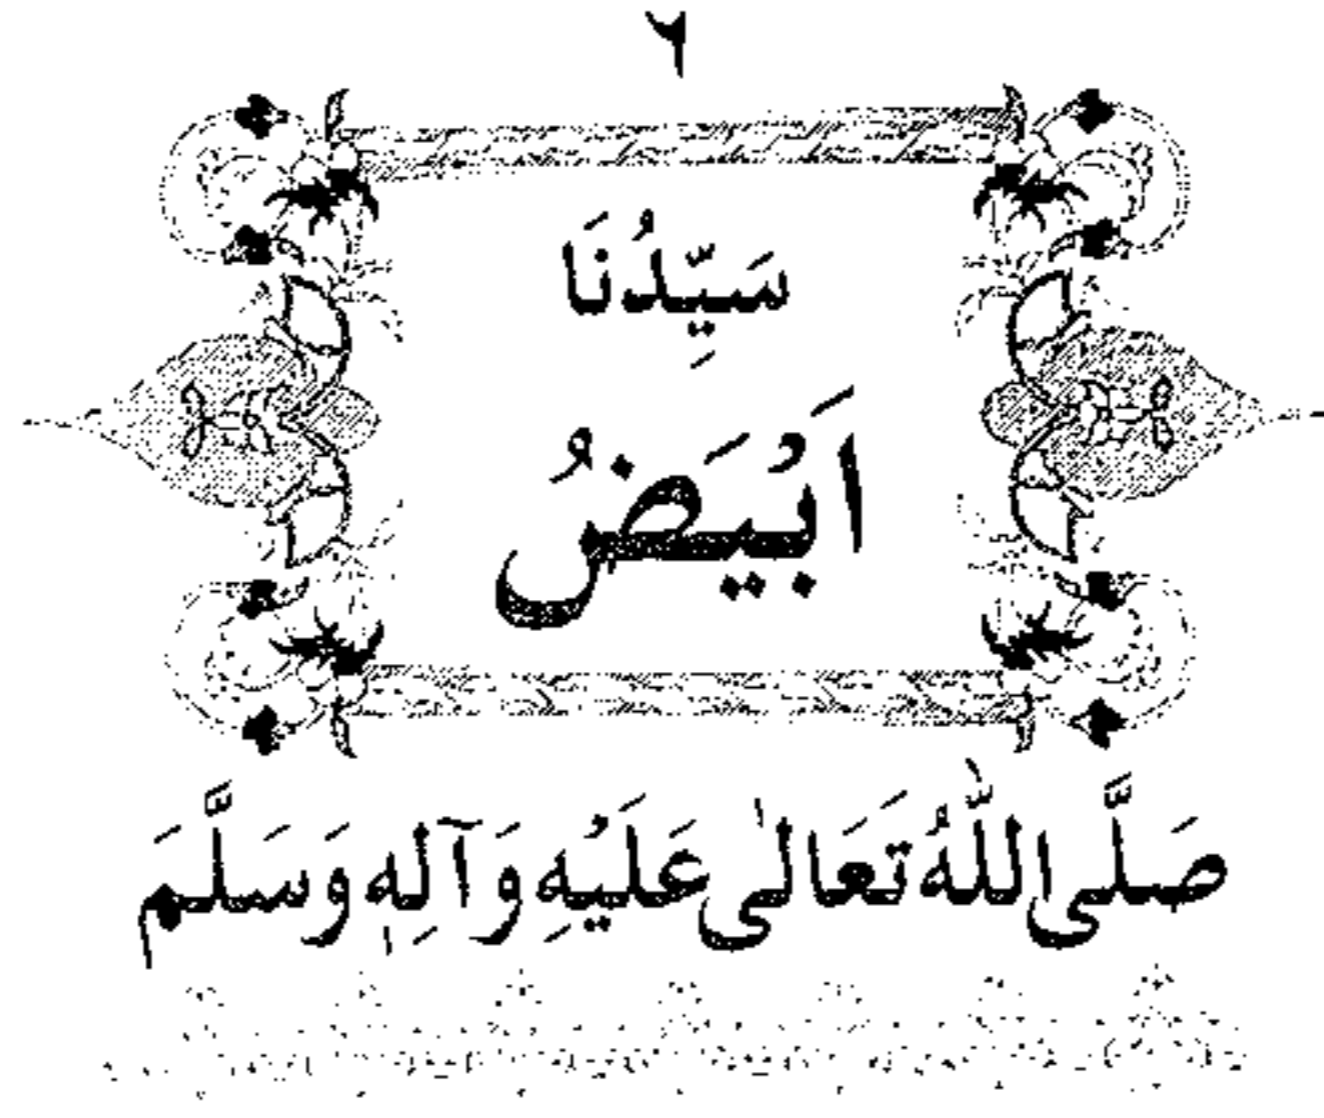 ٦
سَيِّدُنَا
اَبْيَضُ
صَلَّى اللّٰهُ تَعَالٰى عَلَيْهِ وَآلِهٖ وَسَلَّمَ